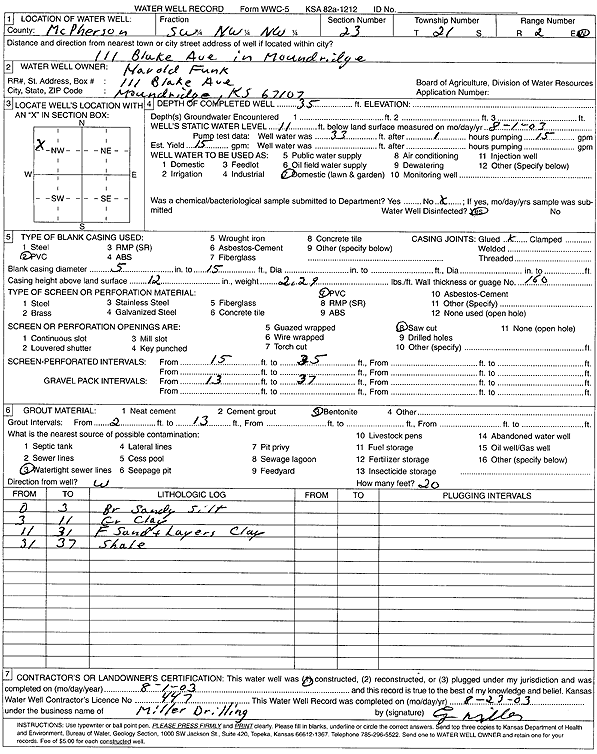 WATER WELL RECORD Form WWC-5 KSA 82a-1212 ID No.
1 LOCATION OF WATER WELL: Fraction Section Number Township Number Range Number
County: McPherson SW ¼ NW ¼ NW ¼ 23 T 21 S R 2 E W
Distance and direction from nearest town or city street address of well if located within city?
111 Blake Ave in Moundridge
2 WATER WELL OWNER: Harold Funk
RR#, St. Address, Box # : 111 Blake Ave Board of Agriculture, Division of Water Resources
City, State, ZIP Code : Moundridge, KS 67107 Application Number:
3 LOCATE WELL'S LOCATION WITH AN "X" IN SECTION BOX:
N
X
NW NE
W E
SW SE
S
4 DEPTH OF COMPLETED WELL 35 ft. ELEVATION:
Depth(s) Groundwater Encountered 1 ft. 2 ft. 3 ft.
WELL'S STATIC WATER LEVEL 11 ft. below land surface measured on mo/day/yr 8-1-03
Pump test data: Well water was 33 ft. after 1 hours pumping 15 gpm
Est. Yield 15 gpm: Well water was ft. after hours pumping gpm
WELL WATER TO BE USED AS: 5 Public water supply 8 Air conditioning 11 Injection well
1 Domestic 3 Feedlot 6 Oil field water supply 9 Dewatering 12 Other (Specify below)
2 Irrigation 4 Industrial 7 Domestic (lawn & garden) 10 Monitoring well
Was a chemical/bacteriological sample submitted to Department? Yes No X ; If yes, mo/day/yrs sample was submitted Water Well Disinfected? Yes No
5 TYPE OF BLANK CASING USED: 5 Wrought iron 8 Concrete tile CASING JOINTS: Glued X Clamped
1 Steel 3 RMP (SR) 6 Asbestos-Cement 9 Other (specify below) Welded
2 PVC 4 ABS 7 Fiberglass Threaded
Blank casing diameter 5 in. to 15 ft., Dia in. to ft., Dia in. to ft.
Casing height above land surface 12 in., weight 2.29 lbs./ft. Wall thickness or guage No. 160
TYPE OF SCREEN OR PERFORATION MATERIAL: 7 PVC 10 Asbestos-Cement
1 Steel 3 Stainless Steel 5 Fiberglass 8 RMP (SR) 11 Other (Specify)
2 Brass 4 Galvanized Steel 6 Concrete tile 9 ABS 12 None used (open hole)
SCREEN OR PERFORATION OPENINGS ARE: 5 Guazed wrapped 8 Saw cut 11 None (open hole)
1 Continuous slot 3 Mill slot 6 Wire wrapped 9 Drilled holes
2 Louvered shutter 4 Key punched 7 Torch cut 10 Other (specify) ft.
SCREEN-PERFORATED INTERVALS: From 15 ft. to 35 ft., From ft. to ft.
From ft. to ft., From ft. to ft.
GRAVEL PACK INTERVALS: From 13 ft. to 37 ft., From ft. to ft.
From ft. to ft., From ft. to ft.
6 GROUT MATERIAL: 1 Neat cement 2 Cement grout 3 Bentonite 4 Other
Grout Intervals: From 2 ft. to 13 ft., From ft. to ft., From ft. to ft.
What is the nearest source of possible contamination: 10 Livestock pens 14 Abandoned water well
1 Septic tank 4 Lateral lines 7 Pit privy 11 Fuel storage 15 Oil well/Gas well
2 Sewer lines 5 Cess pool 8 Sewage lagoon 12 Fertilizer storage 16 Other (specify below)
3 Watertight sewer lines 6 Seepage pit 9 Feedyard 13 Insecticide storage
Direction from well? W How many feet? 20
FROM TO LITHOLOGIC LOG FROM TO PLUGGING INTERVALS
0 3 Br Sandy Silt
3 11 Gr Clay
11 31 F Sand & Layers Clay
31 37 Shale
7 CONTRACTOR'S OR LANDOWNER'S CERTIFICATION: This water well was (1) constructed, (2) reconstructed, or (3) plugged under my jurisdiction and was
completed on (mo/day/year) 8-1-03 and this record is true to the best of my knowledge and belief. Kansas
Water Well Contractor's Licence No 447 This Water Well Record was completed on (mo/day/yr) 8-23-03
under the business name of Miller Drilling by (signature) G Miller
INSTRUCTIONS: Use typewriter or ball point pen. PLEASE PRESS FIRMLY and PRINT clearly. Please fill in blanks, underline or circle the correct answers. Send top three copies to Kansas Department of Health
and Environment, Bureau of Water, Geology Section, 1000 SW Jackson St., Suite 420, Topeka, Kansas 66612-1367. Telephone 785-296-5522. Send one to WATER WELL OWNER and retain one for your
records. Fee of $5.00 for each constructed well.